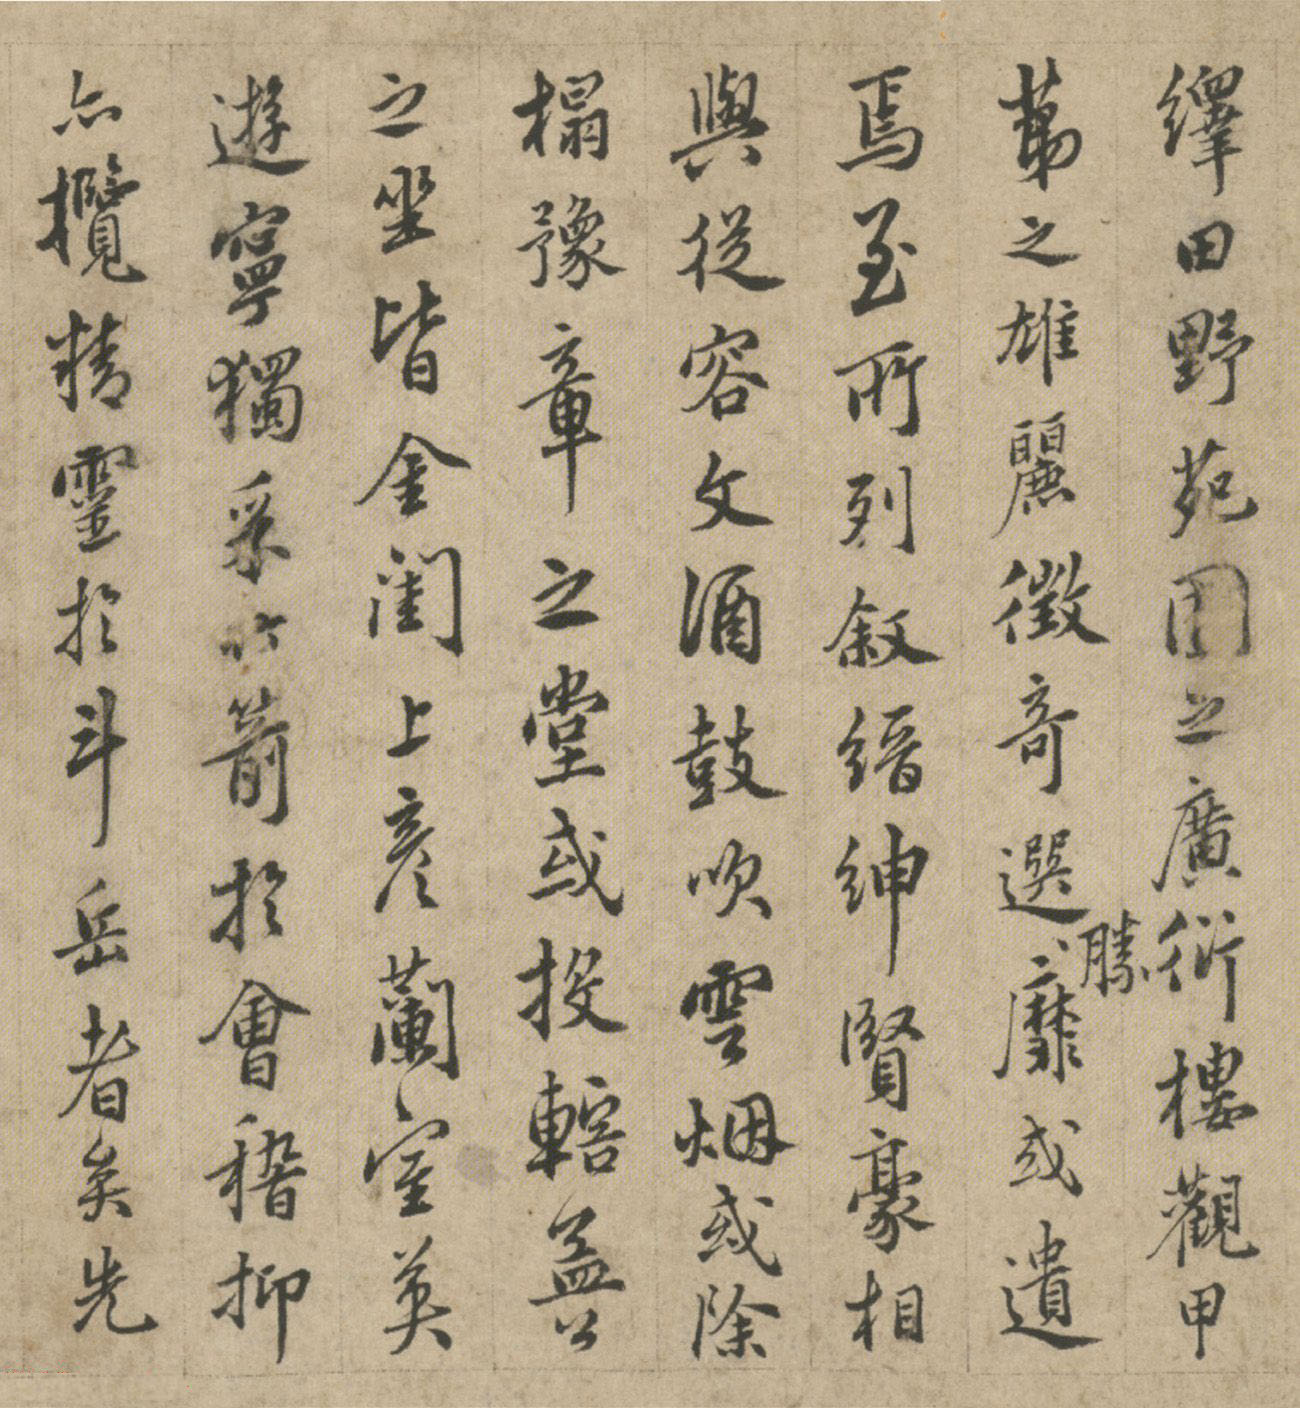 繹田野苑囿之廣衍樓觀甲
苐之雄麗徵奇選勝靡或遺
焉至所列敘縉紳賢豪相
與從容文酒鼓吹雲烟或除
榻豫章之堂或投轄益公
之坐皆金閨上彥蘭室英
遊寧獨采竹箭於會稽抑
亦攬精靈於斗岳者矣先